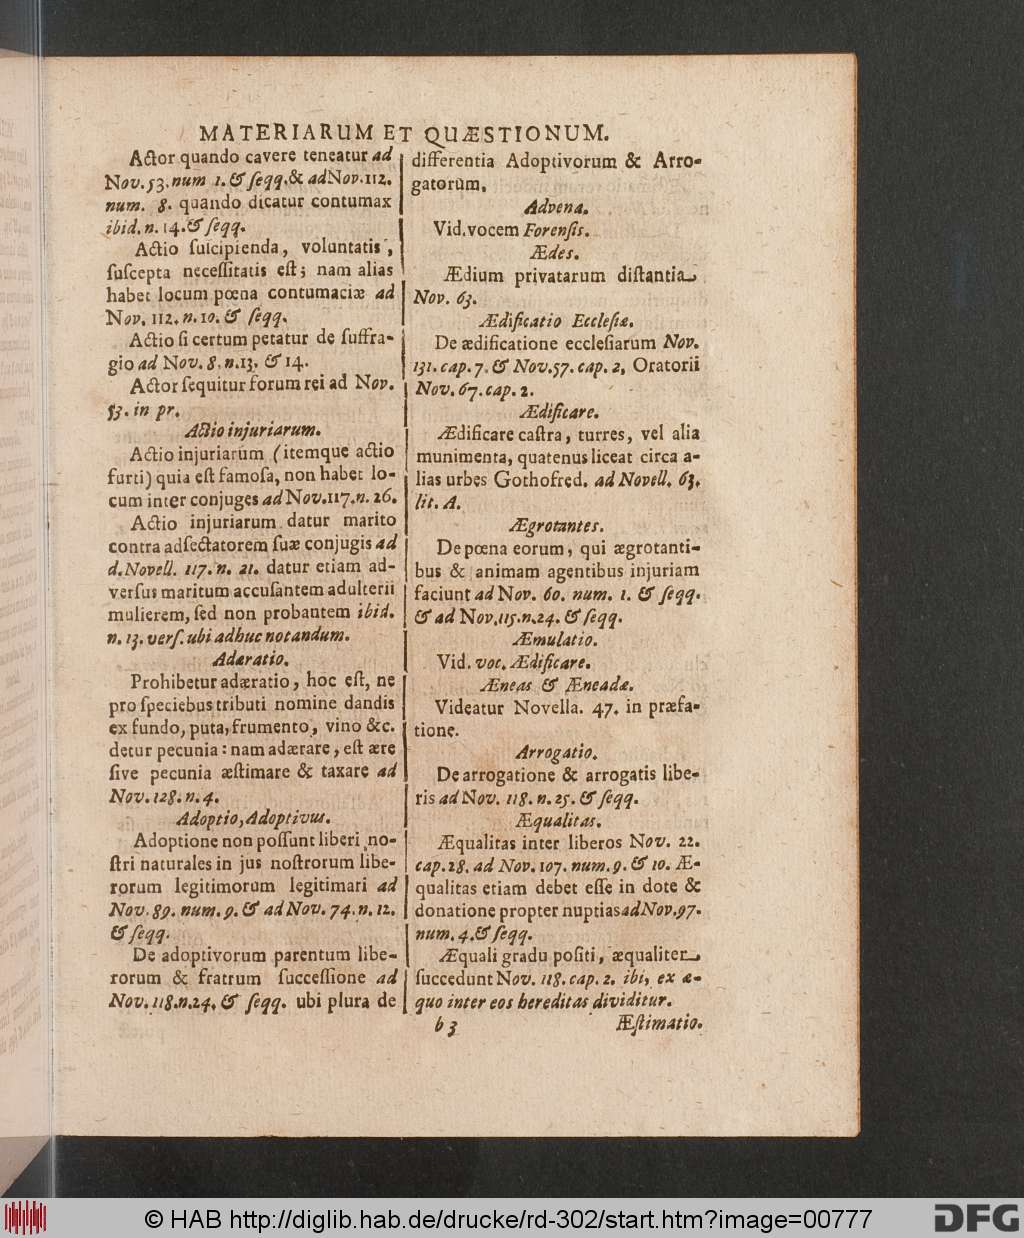 MATERIARUM ET QUÆSTIONUM.
Actor quando cavere teneatur ad
Nov. 53. num 1. & ſeqq. & ad Nov. 112.
num. 8. quando dicatur contumax
ibid. n. 14. & ſeqq.
Actio ſuſcipienda, voluntatis,
ſuſcepta neceſſitatis eſt; nam alias
habet locum pœna contumaciæ ad
Nov. 112. n. 10. & ſeqq.
Actio ſi certum petatur de ſuffra-
gio ad Nov. 8. n. 13. & 14.
Actor ſequitur forum rei ad Nov.
53. in pr.
Actio injuriarum.
Actio injuriarum (itemque actio
furti) quia eſt famoſa, non habet lo-
cum inter conjuges ad Nov. 117. n. 26.
Actio injuriarum datur marito
contra adſectatorem ſuæ conjugis ad
d. Novell. 117. n. 21. datur etiam ad-
verſus maritum accuſantem adulterii
mulierem, ſed non probantem ibid.
n. 13. verſ. ubi adhuc notandum.
Adæratio.
Prohibetur adæratio, hoc eſt, ne
pro ſpeciebus tributi nomine dandis
ex fundo, puta, frumento, vino &c.
detur pecunia: nam adærare, eſt ære
ſive pecunia æſtimare & taxare ad
Nov. 128. n. 4.
Adoptio, Adoptivus.
Adoptione non poſſunt liberi no-
ſtri naturales in jus noſtrorum libe-
rorum legitimorum legitimari ad
Nov. 89. num. 9. & ad Nov. 74. n. 12.
& ſeqq.
De adoptivorum parentum libe-
rorum & fratrum ſucceſſione ad
Nov. 118. n. 24. & ſeqq. ubi plura de
differentia Adoptivorum & Arro-
gatorum.
Advena.
Vid. vocem Forenſis.
Ædes.
Ædium privatarum diſtantia
Nov. 63.
Ædificatio Eccleſiæ.
De ædificatione eccleſiarum Nov.
131. cap. 7. & Nov. 57. cap. 2, Oratorii
Nov. 67. cap. 2.
Ædificare.
Ædificare caſtra, turres, vel alia
munimenta, quatenus liceat circa a-
lias urbes Gothofred. ad Novell. 63.
lit. A.
Ægrotantes.
De pœna eorum, qui ægrotanti-
bus & animam agentibus injuriam
faciunt ad Nov. 60. num. 1. & ſeqq.
& ad Nov. 115. n. 24. & ſeqq.
Æmulatio.
Vid. voc. Ædificare.
Æneas & Æneadæ.
Videatur Novella. 47. in præfa-
tione.
Arrogatio.
De arrogatione & arrogatis libe-
ris ad Nov. 118. n. 25. & ſeqq.
Æqualitas.
Æqualitas inter liberos Nov. 22.
cap. 28. ad Nov. 107. num. 9. & 10. Æ-
qualitas etiam debet eſſe in dote &
donatione propter nuptias ad Nov. 97.
num. 4. & ſeqq.
Æquali gradu poſiti, æqualiter
ſuccedunt Nov. 118. cap. 2. ibi, ex æ-
quo inter eos hereditas dividitur.
b 3
Æſtimatio.
© HAB http://diglib.hab.de/drucke/rd-302/start.htm?image=00777
DFG